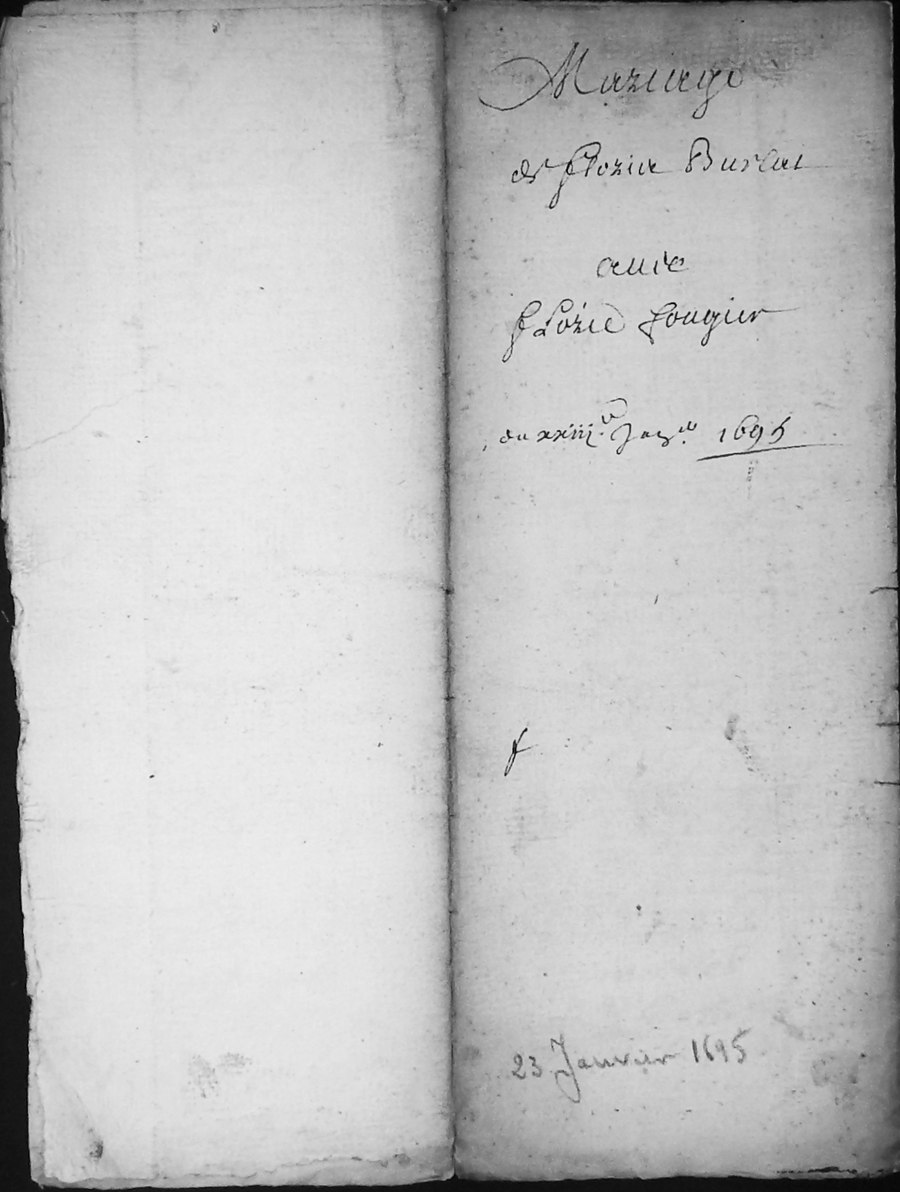 Mariage
de floric Burlat
avec
fLorie fougier
du xxiij.e Janv.er 1695
23 Janvier 1695